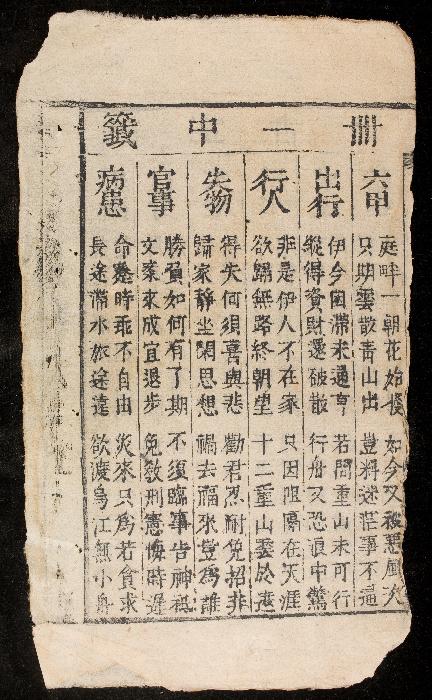 卌一中籤
六甲
庭畔一朝花始慢 如今又被惡風
只期雲散青山出 豈料迷茫事不逼
出行
伊今困滯未通亨 若問重山未可行
縱得資財還破散 行舟又恐浪中驚
行人
非是伊人不在家 只因阻隔在天涯
欲歸無路終朝望 十二重山雲於遮
失物
得失何須喜與悲 勸君忍耐免招非
歸家靜坐閑思想 禍去福來豈為誰
官事
勝負如何有了期 不須臨事告神祇
文案來成宜退步 免教刑憲悔時遲
病患
命蹇時乖不自由 災來只為若貪求
長途滯水旅途遠 欲渡烏江無小舟